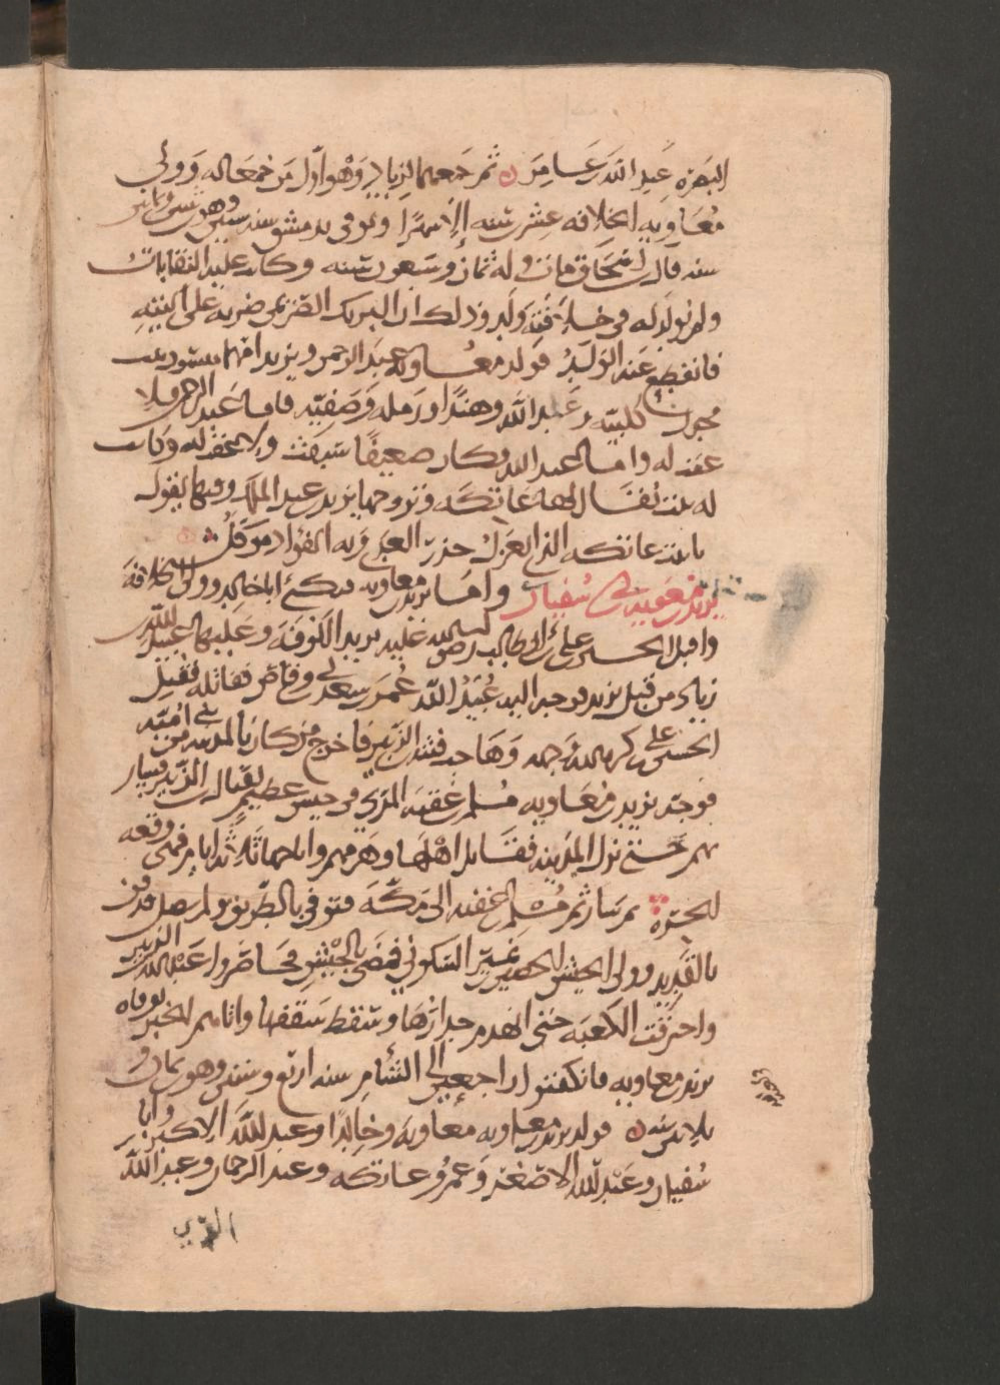 البصره عبد الله بن عامر ن ثم جمعهما لزياد وهو اول من جمعا له وولي
معاويه الخلافه عشرين سنه الا شهرا وتوفى بدمشق سنه ستين وهو بن اثنين وثمانين
سنه قال بن اسحاق مات وله ثمان وسبعون سنه وكان عليه النقابات
ولم يولد له في خلافته ولد وذلك ان البرك الصريمي ضربه على اليتيه
فانقطع عنه الولد فولد معاويه عبد الرحمن ويزيد امهما ميسون بنت
بحدل كلبيه وعبد الله وهندا ورمله وصفيه فاما عبد الرحمن فلا
عقب له واما عبد الله فكان ضعيفا ولا عقب له وكانت
له بنت يقال لها عاتكه تزوجها يزيد بن عبد الملك وفيها يقول
يا بنت عاتكه الذي اتعزل حذر العدى وبه الفؤاد موكل
يزيد بن معويه بن ابي سفيان واما يزيد بن معاويه فكني ابا خالد وولي الخلافه
واقبل الحسين بن علي بن ابي طالب رضي الله عليه يريد الكوفه وعليها عبيد الله بن
زياد من قبل يزيد فوجه اليه عبيد الله عمر بن سعد بن ابي وقاص فقاتله فقتل
الحسين بن علي كرم الله وجهه وهاجت فتنه بن الزبير فاخرج من كان بالمدينه من بني اميه
فوجه يزيد بن معاويه مسلم بن عقبه المري في جيش عظيم لقتال بن الزبير فسار
بهم حتى نزل المدينه فقاتل اهلها وهزمهم واباحها ثلاثه ايام فهي وقعه
الحره ثم سار ثم مسلم بن عقبه الى مكه فتوفي بالطريق ولم يصل فدفن
بالقديد وولي الجيش الحصين بن نمير السكوني فمضى بالجيش فحاصروا عبد الله بن الزبير
واحترقت الكعبه حتى انهدم جدارها وسقط سقفها واتاهم الخبر بوفاه
يزيد بن معاويه فانكفئوا راجعين الى الشام سنه اربع وستين وهو بن ثمان و
ثلاثين سنه ن فولد يزيد بن معاويه معاويه وخالدا وعبد الله الاكبر وابا
سفيان وعبد الله الاصغر وعمر وعاتكه وعبد الرحمان وعبد الله
الذي